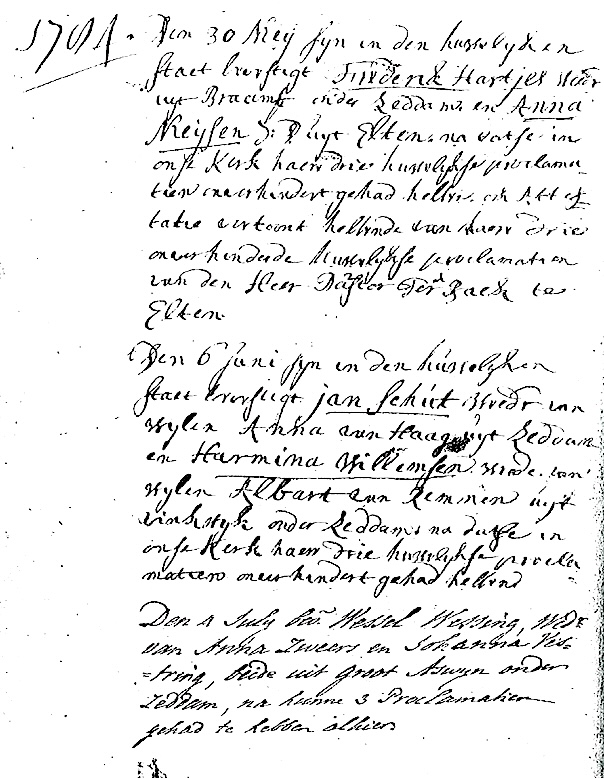 1784. Den 30 Meij syn in den huwelyken
staet bevestigt Frederik Hartjes
uyt Braamt onder Zeddam en Anna
Meijsen J: D uyt Elten, na datse in
onse Kerk haer drie huwelykse proclama
tien onverhindert gehad hebben, ook Attes
tatie vertoont hebbende van haer drie
onverhinderde huwelykse proclamatien
van den Heer Pastor te
Elten
Den 6 Juni syn in den huwelyken
staet bevestigt jan Schut Wedr van
wylen Anna van Haag uyt Zeddam
en Harmina Willemsen Wede. van
wylen Albart van Remmen uyt
vinkwyk onder Zeddam, na datse in
onse Kerk haer drie huwelykse procla
matien onverhindert gehad hebben
Den 4 July Wessel Wessing, Wedr
van Anna Zweers en Johanna Ves-
=tring, beide uit groot Aswyn onder
Zeddam, na hunne 3 Proclamatien
gehad te hebben alhier